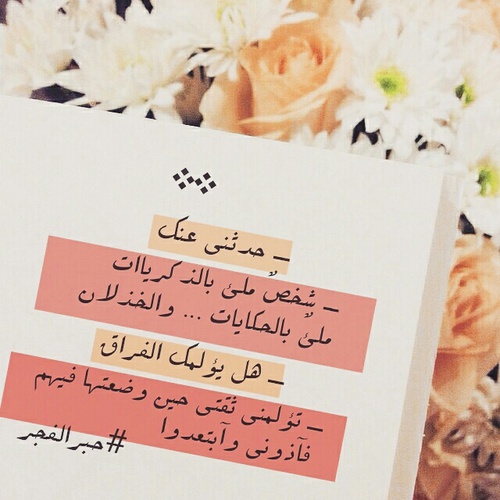 _ حدثني عنك
_ شخصٌ ملئ بالذكرياات
ملئٌ بالحكايات ... والخذلان
_ هل يؤلمك الفراق
_ تؤلمني ثقتي حين وضعتها فيهم
فآذوني وآبتعدوا
#حبرالفجر